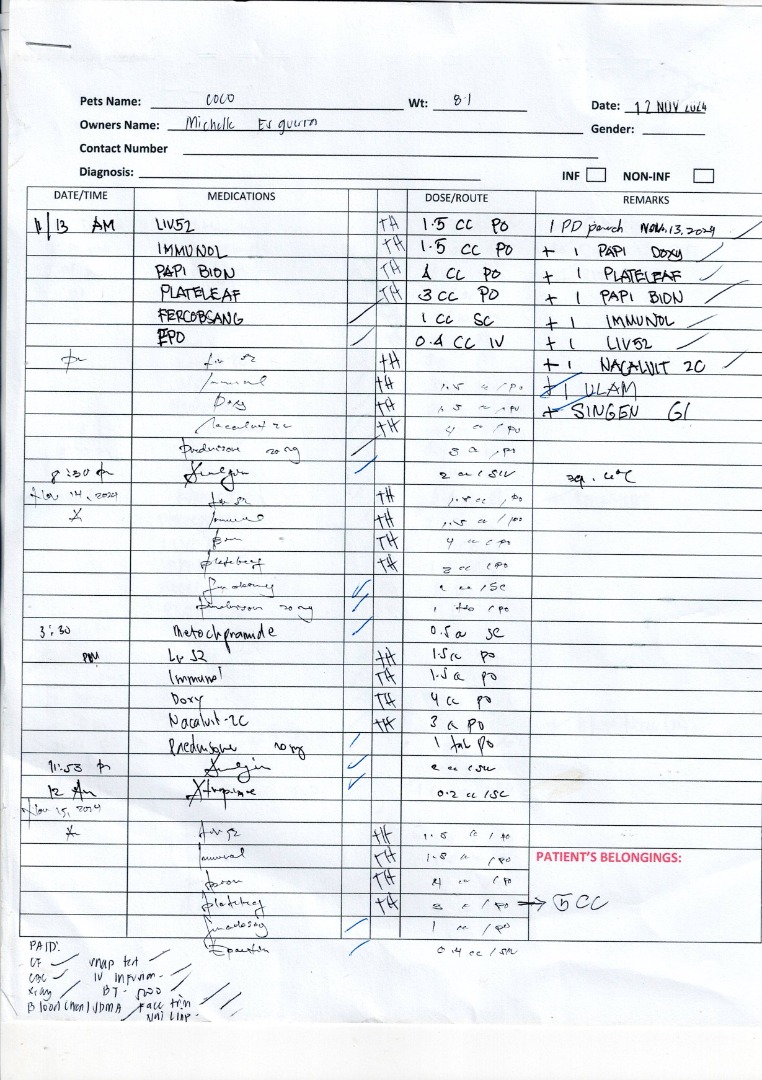 Pets Name: COCO Wt: 8.1 Date: 12 NOV 2024
Owners Name: Michelle Esguerra Gender:
Contact Number
Diagnosis: INF NON-INF
DATE/TIME MEDICATIONS DOSE/ROUTE REMARKS
11/13 AM LIV52 TH 1.5 CC PO 1 PD pouch Nov. 13, 2024
IMMUNOL TH 1.5 CC PO + 1 PAPI DOXY
PAPI BION TH 4 CC PO + 1 PLATELEAF
PLATELEAF TH 3 CC PO + 1 PAPI BION
FERCOBSANG 1 CC SC + 1 IMMUNOL
EPO 0.4 CC IV + 1 LIV52
pm Liv 52 TH + 1 NACALVIT 2C
Immunol TH 1.5 cc / po + 1 ULAM
Doxy TH 1.5 cc / po + SINGEN GI
Nacalvit 2c TH 4 cc / po
Prednisone 20 mg 3 cc / po
8:30 pm 2 cc / SIV
Nov 14, 2024 Liv 52 TH 1.5 cc / po
Immunol TH 1.5 cc / po
TH 4 cc / po
TH 3 cc / po
cc / SC
20 mg 1 tab / po
3:30 Metoclopramide 0.5 cc SC
PM Liv 52 TH 1.5 cc PO
Immunol TH 1.5 cc PO
Doxy TH 4 cc PO
Nacalvit-2C TH 3 cc PO
Prednisone 20 mg 1 tab PO
11:53 pm
12 Am Atropine 0.2 cc / SC
Nov 15, 2024
Liv 52 TH 1.5 cc / po
Immunol TH 1.5 cc / po
TH 4 cc / po
TH 3 cc / po → 5 CC
1 cc / po
0.4 cc / SIV
PATIENT'S BELONGINGS:
PAID:
CF snap test
CBC IV infusion
Xray BT - 500
Blood Chem / VDMA Face trim
Nail clip